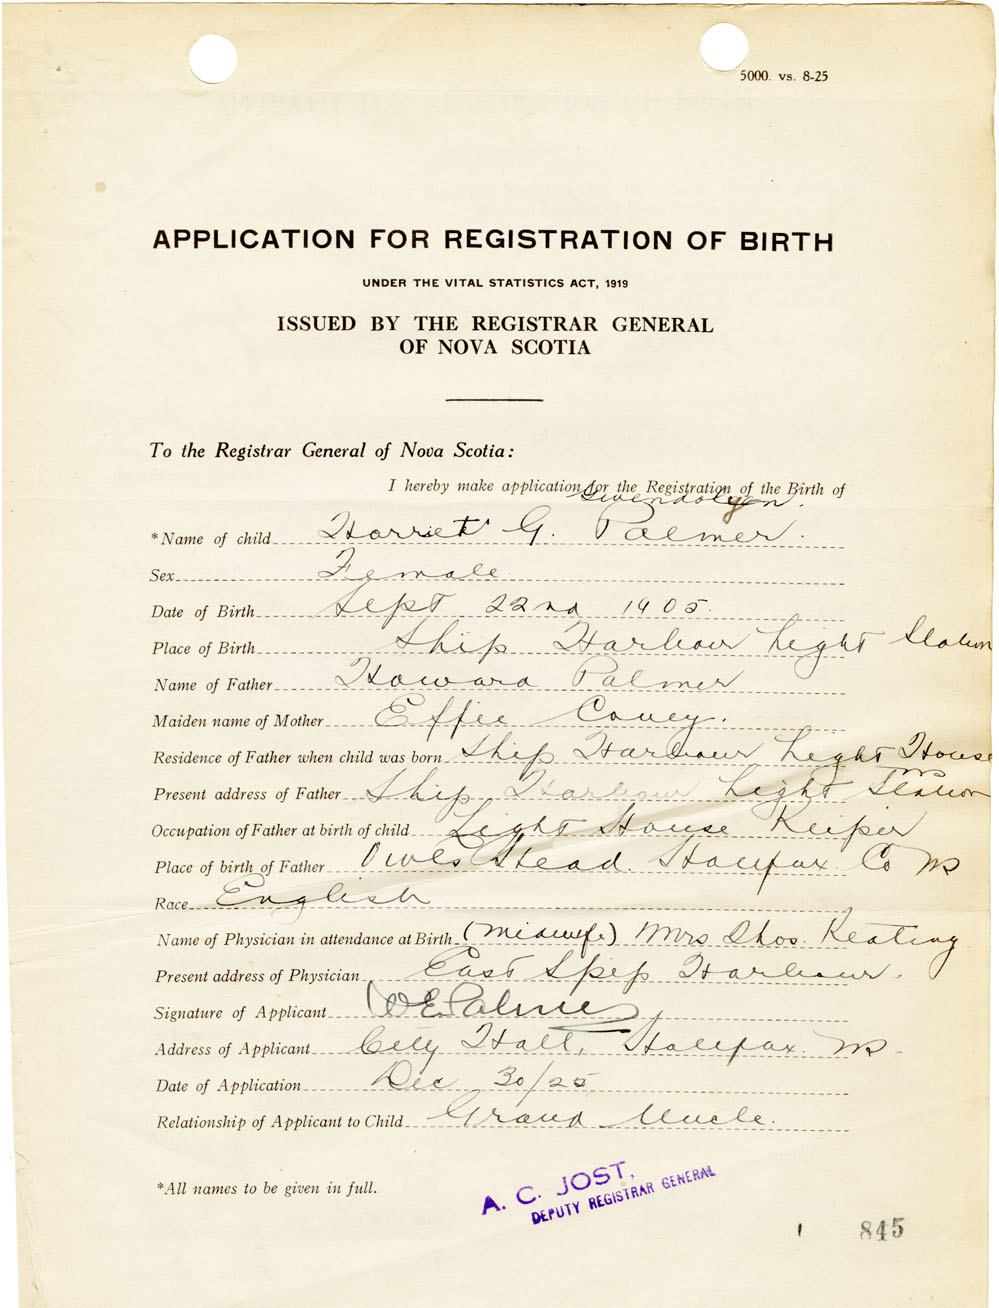 5000. vs. 8-25
APPLICATION FOR REGISTRATION OF BIRTH
UNDER THE VITAL STATISTICS ACT, 1919
ISSUED BY THE REGISTRAR GENERAL
OF NOVA SCOTIA
To the Registrar General of Nova Scotia:
I hereby make application for the Registration of the Birth of
Gwendolyn.
*Name of child Harriet G. Palmer.
Sex Female
Date of Birth Sept 22nd 1905.
Place of Birth Ship Harbour Light Station
Name of Father Howard Palmer
Maiden name of Mother Effie Covey.
Residence of Father when child was born Ship Harbour Light House
NS
Present address of Father Ship Harbour Light Station
Occupation of Father at birth of child Light House Keiper
Place of birth of Father Owls Head Halifax Co NS
Race English
Name of Physician in attendance at Birth (Midwife) Mrs Thos. Keating
Present address of Physician East Ship Harbour.
Signature of Applicant W E Palmer
Address of Applicant City Hall, Halifax. NS.
Date of Application Dec 30/25
Relationship of Applicant to Child Grand Uncle.
*All names to be given in full.
A. C. JOST,
DEPUTY REGISTRAR GENERAL
845